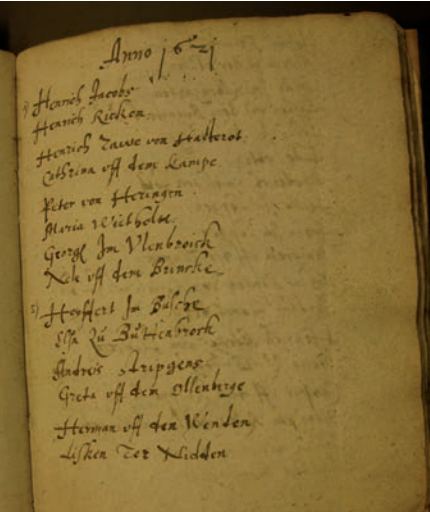 Anno 1621
1) Henrich Jacobs
Henrich Kicken
Henrich Tawe von Halterot
Cathrina vff dem Kampe
Peter von Heringen
Maria Wietholtz
Georg Im Vlenbroick
Nele vff dem Brincke
2) Herffert Im Busche
Elsa Zu Buttenbrock
Andreis
Greta vff dem Ollenberge
Herman vff den Wenden
Lisken Ter Nidden